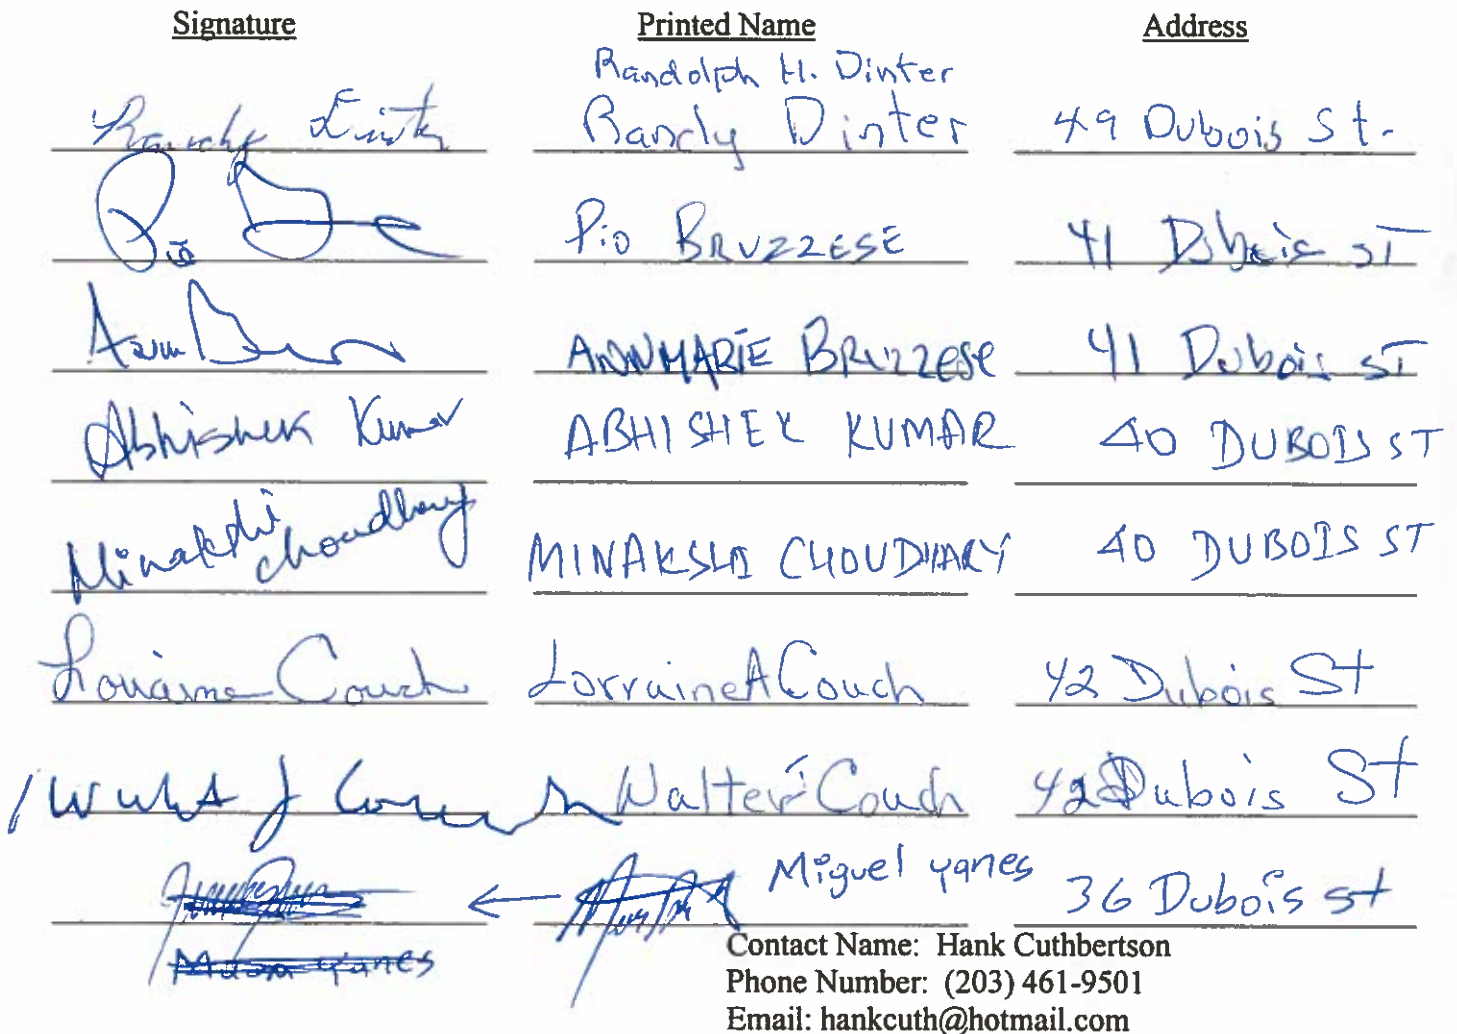 Signature Printed Name Address
Randolph H. Dinter
Randy Dinter Randy Dinter 49 Dubois St.
Pio Pio BRUZZESE 41 Dubois ST
ANNMARIE BRUZZESE 41 Dubois ST
Abhishek Kumar ABHISHEK KUMAR 40 DUBOIS ST
Minakshi Choudhary MINAKSHI CHOUDHARY 40 DUBOIS ST
Lorraine Couch Lorraine A Couch 42 Dubois St
Walter J Couch Walter J Couch 42 Dubois St
← Miguel yanes 36 Dubois st
yanes
Contact Name: Hank Cuthbertson
Phone Number: (203) 461-9501
Email: hankcuth@hotmail.com